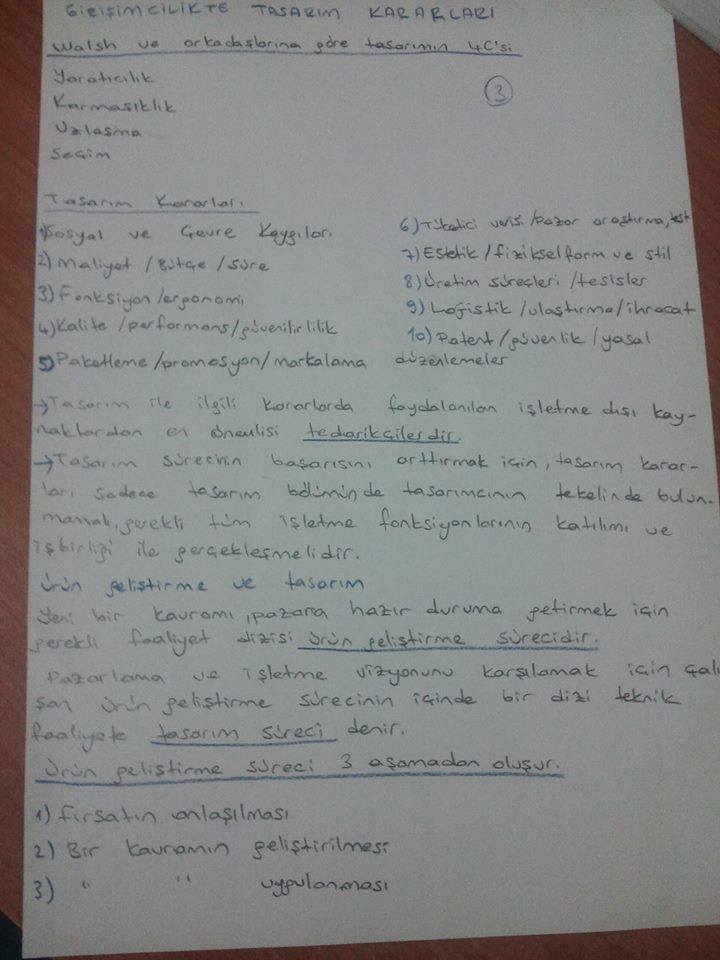 GİRİŞİMCİLİKTE TASARIM KARARLARI
Walsh ve arkadaşlarına göre tasarımın 4C'si
Yaratıcılık
Karmaşıklık
Uzlaşma
Seçim
3
Tasarım Kararları
1) Sosyal ve Çevre Kaygıları
2) Maliyet / Bütçe / Süre
3) Fonksiyon / ergonomi
4) Kalite / performans / güvenilirlilik
5) Paketleme / promosyon / markalama
6) Tüketici verisi / pazar araştırma, test
7) Estetik / fiziksel form ve stil
8) Üretim süreçleri / tesisler
9) Lojistik / ulaştırma / ihracat
10) Patent / güvenlik / yasal
düzenlemeler
→ Tasarım ile ilgili kararlarda faydalanılan işletme dışı kay-
naklardan en önemlisi tedarikçilerdir.
→ Tasarım sürecinin başarısını arttırmak için, tasarım karar-
ları sadece tasarım bölümünde tasarımcının tekelinde bulun-
mamalı, gerekli tüm işletme fonksiyonlarının katılımı ve
işbirliği ile gerçekleşmelidir.
Ürün geliştirme ve tasarım
Yeni bir kavramı, pazara hazır duruma getirmek için
gerekli faaliyet dizisi ürün geliştirme sürecidir.
Pazarlama ve işletme vizyonunu karşılamak için çalı
şan ürün geliştirme sürecinin içinde bir dizi teknik
faaliyete tasarım süreci denir.
Ürün geliştirme süreci 3 aşamadan oluşur.
1) Fırsatın anlaşılması
2) Bir kavramın geliştirilmesi
3) " " uygulanması